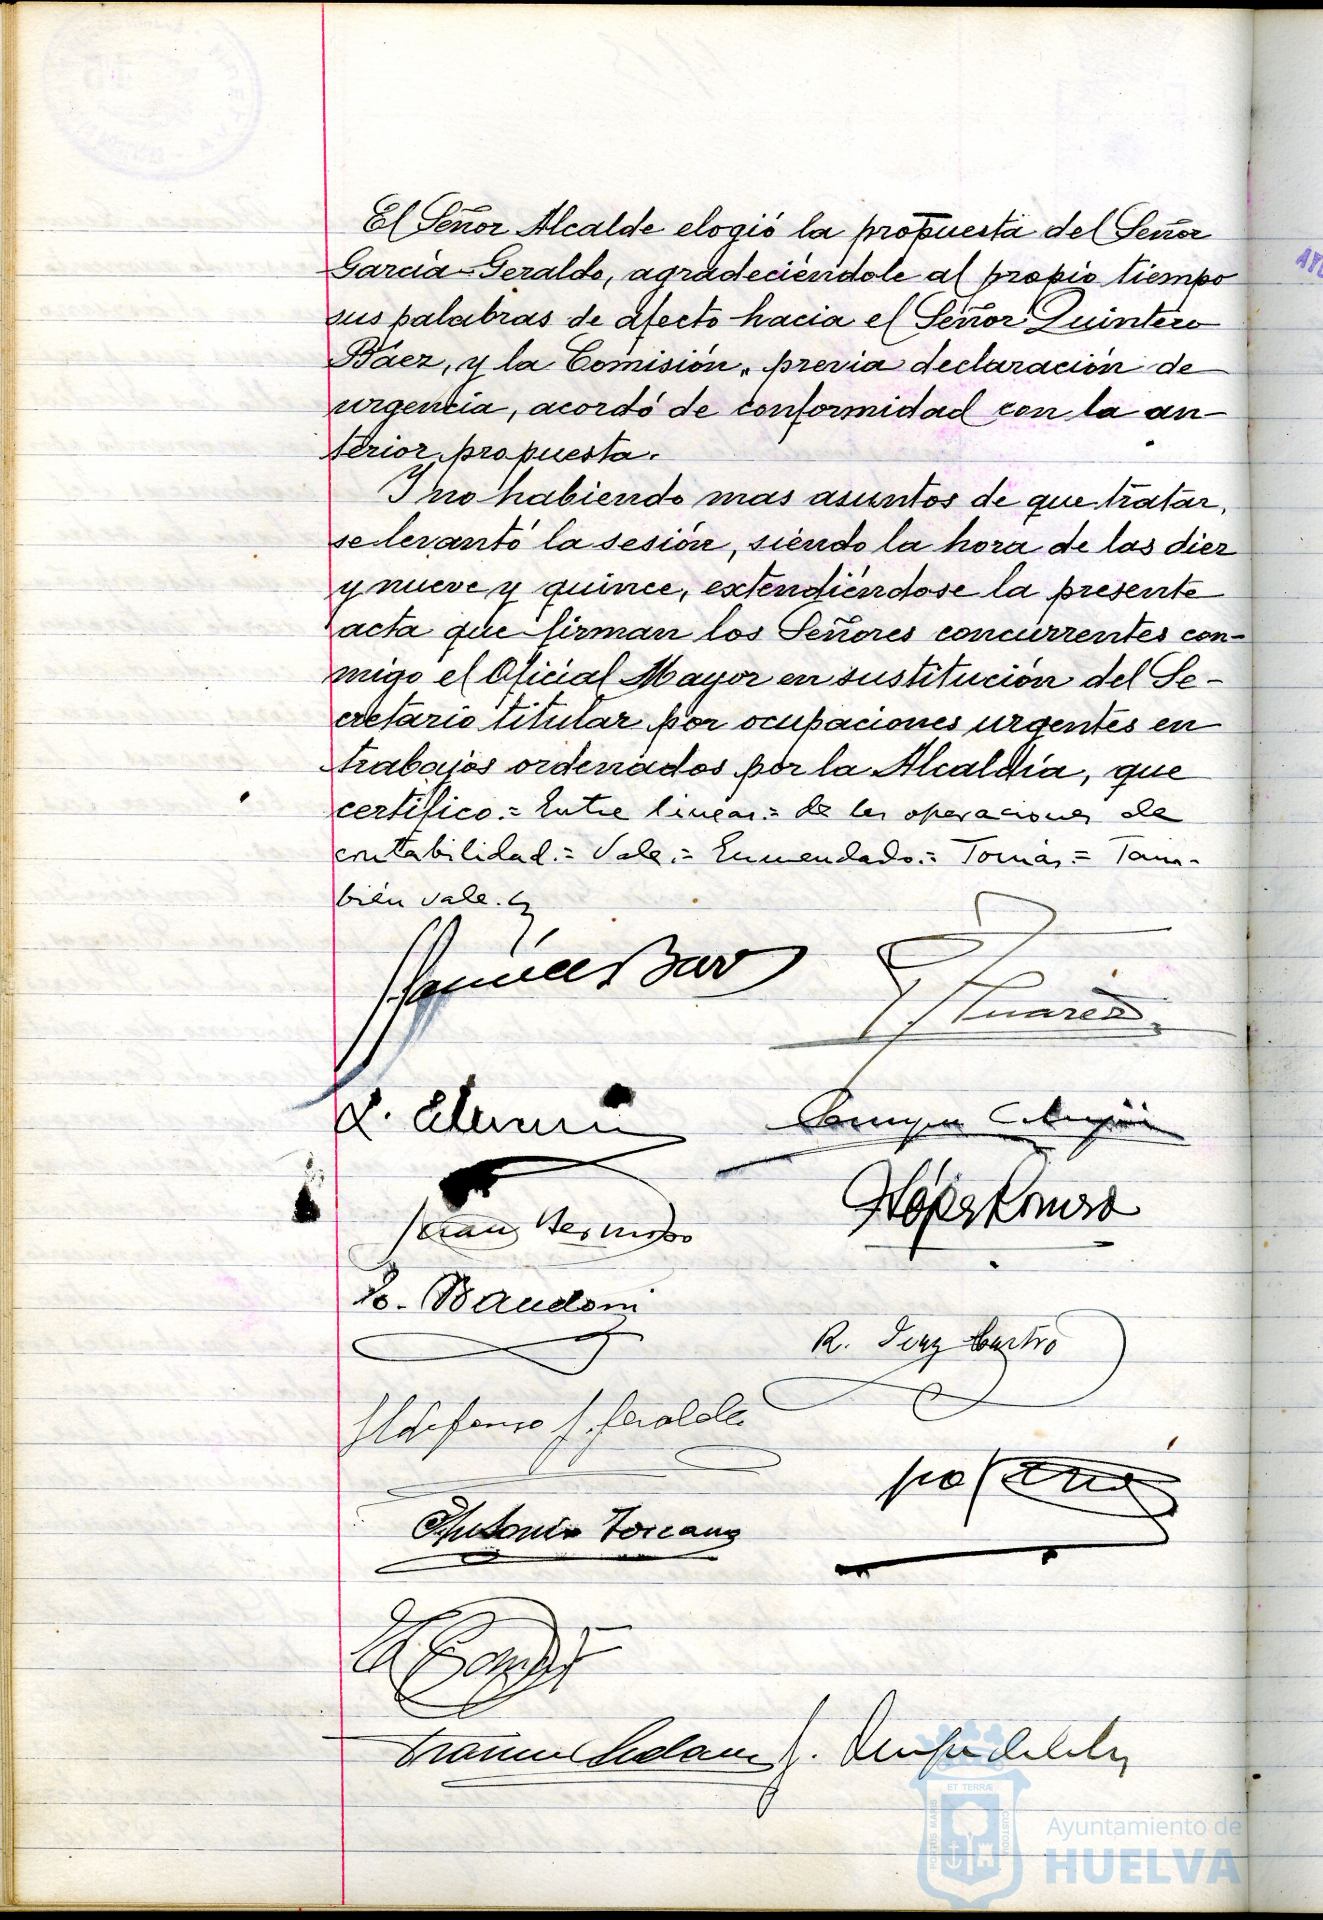 El Señor Alcalde elogió la propuesta del Señor
García-Geraldo, agradeciéndole al propio tiempo
sus palabras de afecto hacia el Señor Quintero
Báez, y la Comisión, previa declaración de
urgencia, acordó de conformidad con la an-
terior propuesta.
Y no habiendo mas asuntos de que tratar,
se levantó la sesión, siendo la hora de las diez
y nueve y quince, extendiéndose la presente
acta que firman los Señores concurrentes con-
migo el Oficial Mayor en sustitución del Se-
cretario titular por ocupaciones urgentes en
trabajos ordenados por la Alcaldía, que
certifico.= Entre lineas.= de las operaciones de
contabilidad.= Vale.= Enmendado.= Tomás= Tam-
bién vale.
Suarez
Juan Bermudo
López Romero
R. Díaz Castro
Ildefonso G. Geraldo
Antonio Toscano
ET TERRÆ
PORTUS MARIS
CUSTODIA
Ayuntamiento de
HUELVA